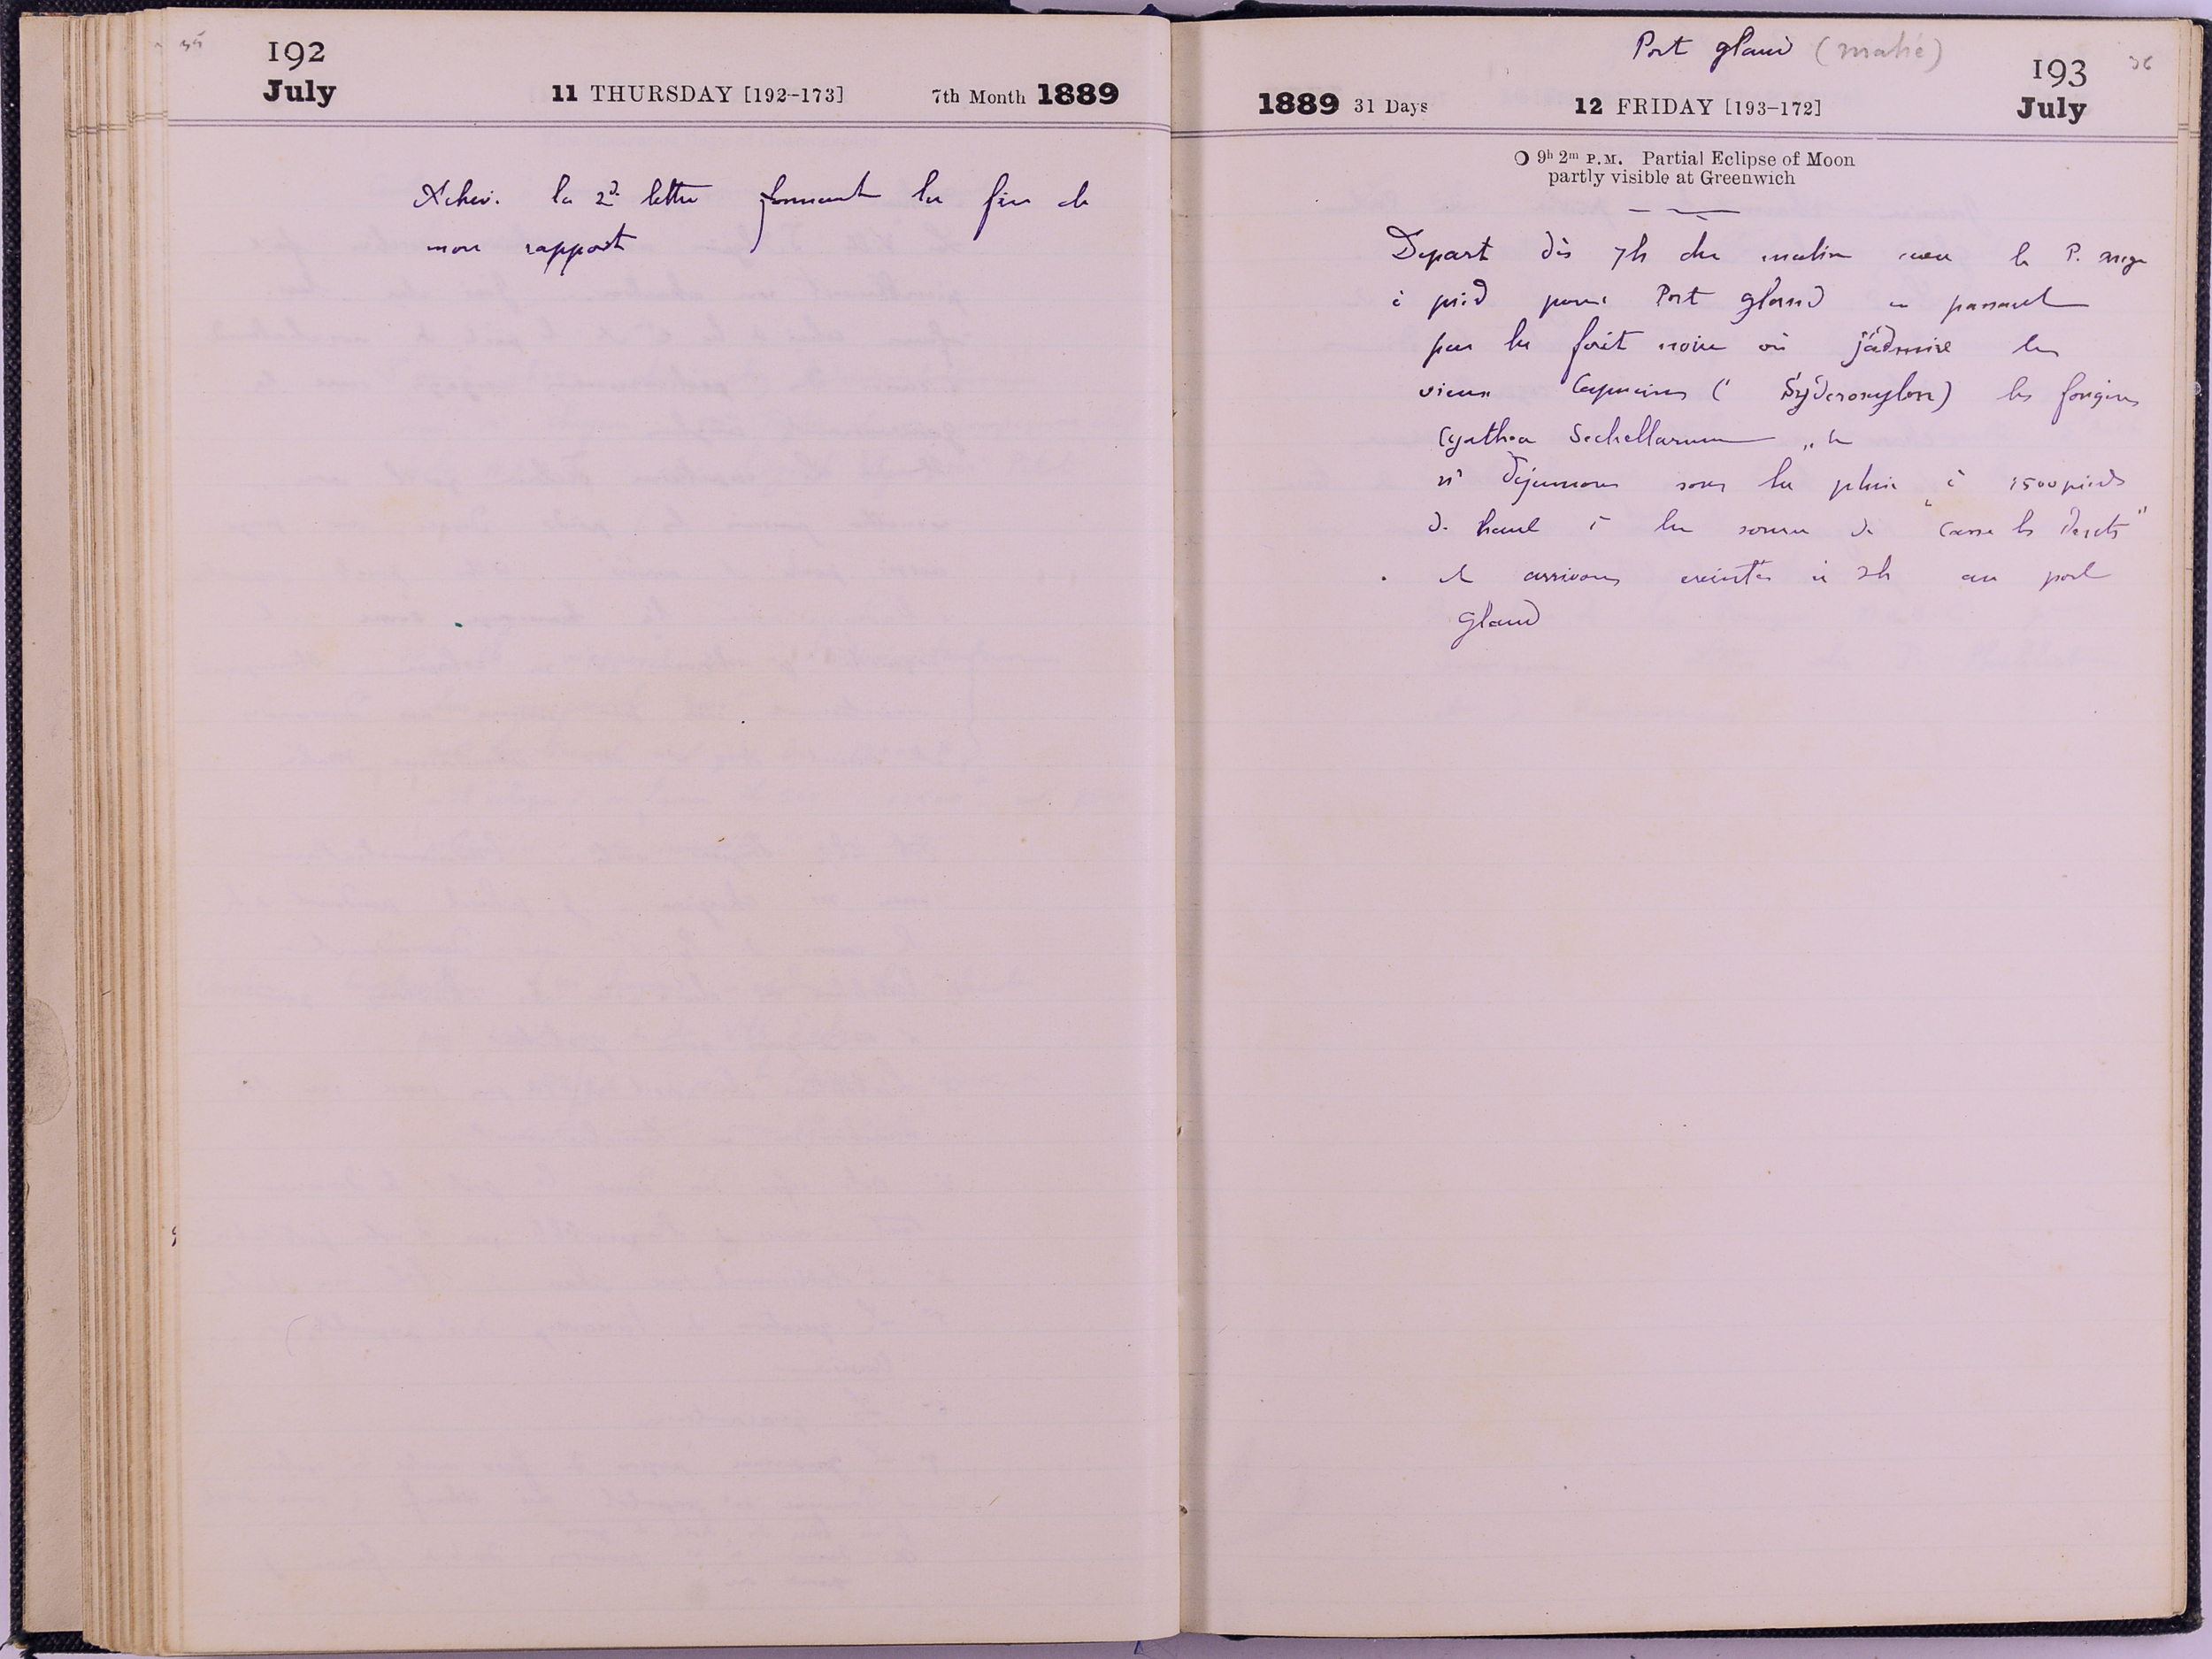 35
192
July
11 THURSDAY [192-173]
7th Month 1889
Achevé la 2d lettre formant la fin de
mon rapport
Port glaud (mahé)
36
193
July
1889 31 Days
12 FRIDAY [193-172]
9h 2m P.M. Partial Eclipse of Moon
partly visible at Greenwich
Depart dès 7h du matin avec le P.
à pied pour Port glaud en passant
par la forêt noire où j'admire les
vieux Capucins ( Syderoxylon) les fougères
Cyathea Sechellarum
ns déjeunons sous la pluie à 1500 pieds
de haut à la source de "Casse les dents"
et arrivons éreintés à 2h au port
glaud